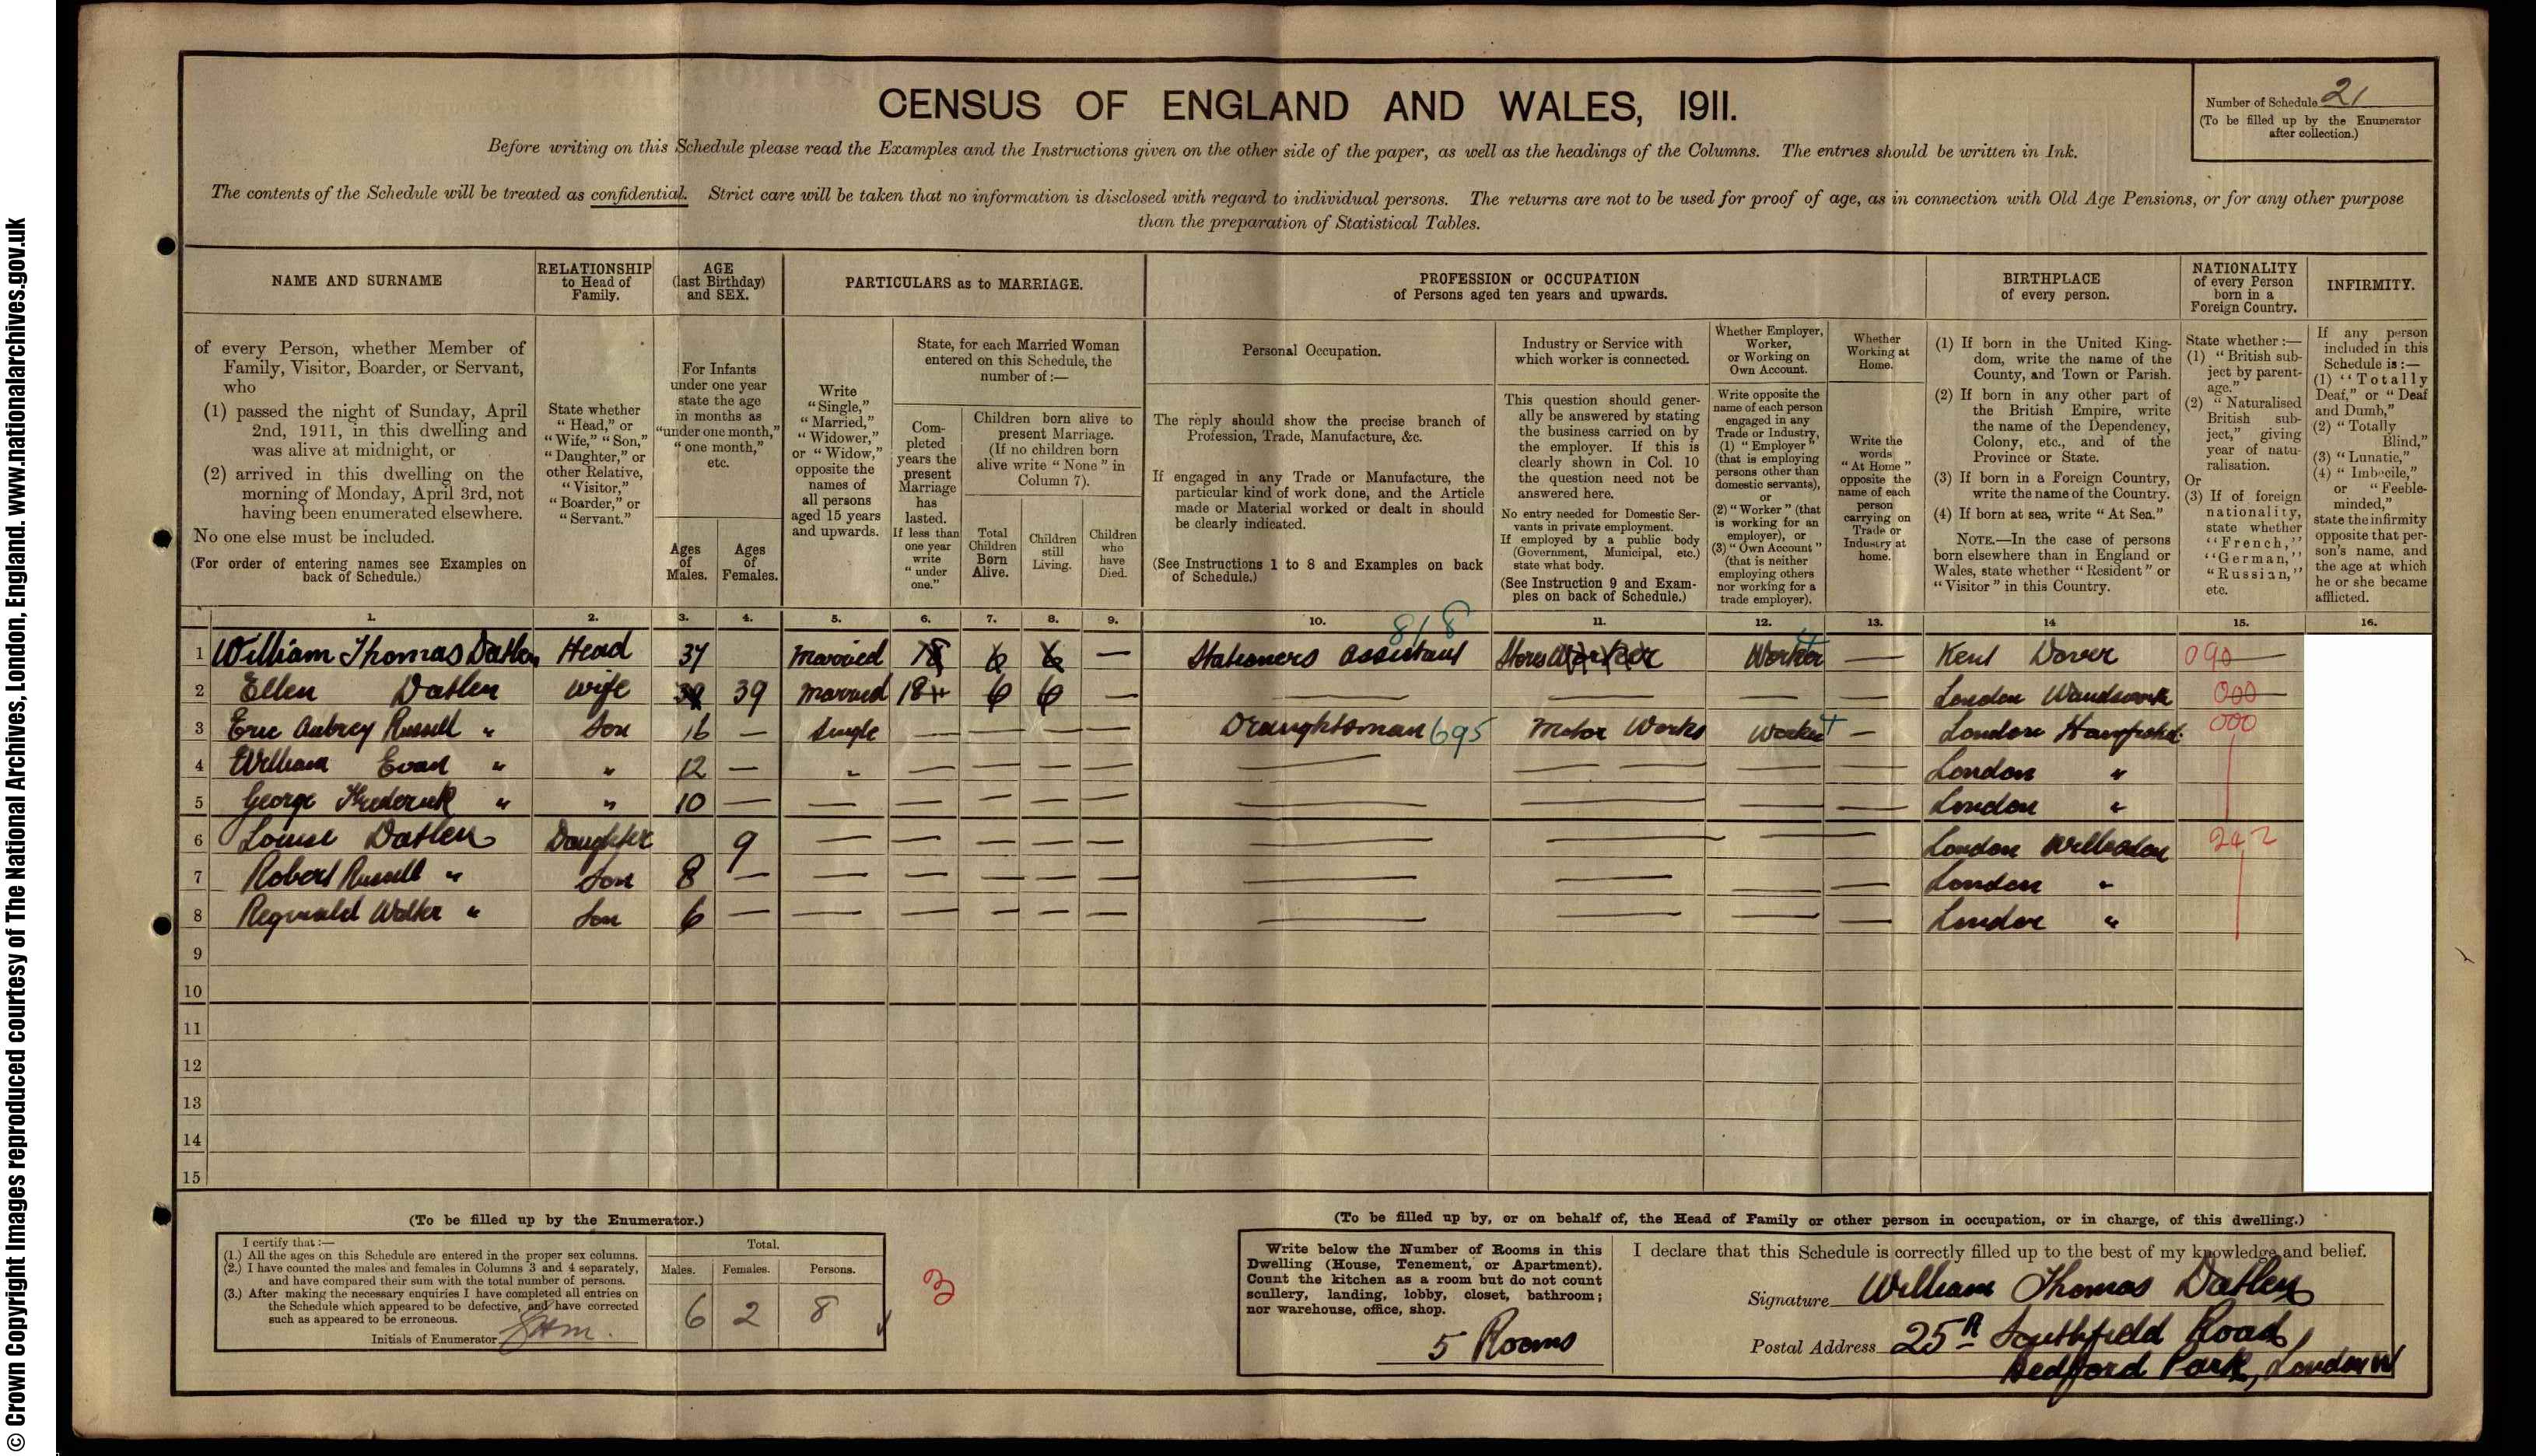 CENSUS OF ENGLAND AND WALES, 1911.
Number of Schedule 21
(To be filled up by the Enumerator
after collection.)
Before writing on this Schedule please read the Examples and the Instructions given on the other side of the paper, as well as the headings of the Columns. The entries should be written in Ink.
The contents of the Schedule will be treated as confidential. Strict care will be taken that no information is disclosed with regard to individual persons. The returns are not to be used for proof of age, as in connection with Old Age Pensions, or for any other purpose
than the preparation of Statistical Tables.
NAME AND SURNAME
of every Person, whether Member of
Family, Visitor, Boarder, or Servant,
who
(1) passed the night of Sunday, April
2nd, 1911, in this dwelling and
was alive at midnight, or
(2) arrived in this dwelling on the
morning of Monday, April 3rd, not
having been enumerated elsewhere.
No one else must be included.
(For order of entering names see Examples on
back of Schedule.)
RELATIONSHIP
to Head of
Family.
State whether
"Head," or
"Wife," "Son,"
"Daughter," or
other Relative,
"Visitor,"
"Boarder," or
"Servant."
AGE
(last Birthday)
and SEX.
For Infants
under one year
state the age
in months as
"under one month,"
"one month,"
etc.
Ages
of
Males.
Ages
of
Females.
PARTICULARS as to MARRIAGE.
Write
"Single,"
"Married,"
"Widower,"
or "Widow,"
opposite the
names of
all persons
aged 15 years
and upwards.
State, for each Married Woman
entered on this Schedule, the
number of:—
Com-
pleted
years the
present
Marriage
has
lasted.
If less than
one year
write
"under
one."
Children born alive to
present Marriage.
(If no children born
alive write "None" in
Column 7).
Total
Children
Born
Alive.
Children
still
Living.
Children
who
have
Died.
PROFESSION or OCCUPATION
of Persons aged ten years and upwards.
Personal Occupation.
The reply should show the precise branch of
Profession, Trade, Manufacture, &c.
If engaged in any Trade or Manufacture, the
particular kind of work done, and the Article
made or Material worked or dealt in should
be clearly indicated.
(See Instructions 1 to 8 and Examples on back
of Schedule.)
Industry or Service with
which worker is connected.
This question should gener-
ally be answered by stating
the business carried on by
the employer. If this is
clearly shown in Col. 10
the question need not be
answered here.
No entry needed for Domestic Ser-
vants in private employment.
If employed by a public body
(Government, Municipal, etc.)
state what body.
(See Instruction 9 and Exam-
ples on back of Schedule.)
Whether Employer,
Worker,
or Working on
Own Account.
Write opposite the
name of each person
engaged in any
Trade or Industry,
(1) "Employer"
(that is employing
persons other than
domestic servants),
or
(2) "Worker" (that
is working for an
employer), or
(3) "Own Account"
(that is neither
employing others
nor working for a
trade employer).
Whether
Working at
Home.
Write the
words
"At Home"
opposite the
name of each
person
carrying on
Trade or
Industry at
home.
BIRTHPLACE
of every person.
(1) If born in the United King-
dom, write the name of the
County, and Town or Parish.
(2) If born in any other part of
the British Empire, write
the name of the Dependency,
Colony, etc., and of the
Province or State.
(3) If born in a Foreign Country,
write the name of the Country.
(4) If born at sea, write "At Sea."
NOTE.—In the case of persons
born elsewhere than in England or
Wales, state whether "Resident" or
"Visitor" in this Country.
NATIONALITY
of every Person
born in a
Foreign Country.
State whether :—
(1) "British sub-
ject by parent-
age."
(2) "Naturalised
British sub-
ject," giving
year of natu-
ralisation.
Or
(3) If of foreign
nationality,
state whether
"French,"
"German,"
"Russian,"
etc.
INFIRMITY.
If any person
included in this
Schedule is :—
(1) "Totally
Deaf," or "Deaf
and Dumb,"
(2) "Totally
Blind,"
(3) "Lunatic,"
(4) "Imbecile,"
or "Feeble-
minded,"
state the infirmity
opposite that per-
son's name, and
the age at which
he or she became
afflicted.
1. 2. 3. 4. 5. 6. 7. 8. 9. 10. 11. 12. 13. 14 15. 16.
818
1 William Thomas Datlen Head 37 Married 18 6 6 — Stationers assistant Stores Worker Worker — Kent Dover 090
2 Ellen Datlen Wife 39 39 Married 18 6 6 — — — — — London Wandsworth 000
3 Eric Aubrey Russell " Son 16 — Single — — — — Draughtsman 695 Motor Works Worker — London Hampstead 000
4 William Evan " " 12 — " — — — — — — — — London "
5 George Frederick " " 10 — — — — — — — — — — London "
6 Louise Datlen Daughter 9 — — — — — — — — London Willesden 242
7 Robert Russell " Son 8 — — — — — — — — — — London "
8 Reginald Walter " Son 6 — — — — — — — — — — London "
9
10
11
12
13
14
15
(To be filled up by the Enumerator.)
I certify that :—
(1.) All the ages on this Schedule are entered in the proper sex columns.
(2.) I have counted the males and females in Columns 3 and 4 separately,
and have compared their sum with the total number of persons.
(3.) After making the necessary enquiries I have completed all entries on
the Schedule which appeared to be defective, and have corrected
such as appeared to be erroneous.
Initials of Enumerator
Total.
Males. Females. Persons.
6 2 8
3
(To be filled up by, or on behalf of, the Head of Family or other person in occupation, or in charge, of this dwelling.)
Write below the Number of Rooms in this
Dwelling (House, Tenement, or Apartment).
Count the kitchen as a room but do not count
scullery, landing, lobby, closet, bathroom;
nor warehouse, office, shop.
5 Rooms
I declare that this Schedule is correctly filled up to the best of my knowledge and belief.
Signature William Thomas Datlen
Postal Address 25A Southfield Road,
Bedford Park, London W
© Crown Copyright Images reproduced courtesy of The National Archives, London, England. www.nationalarchives.gov.uk